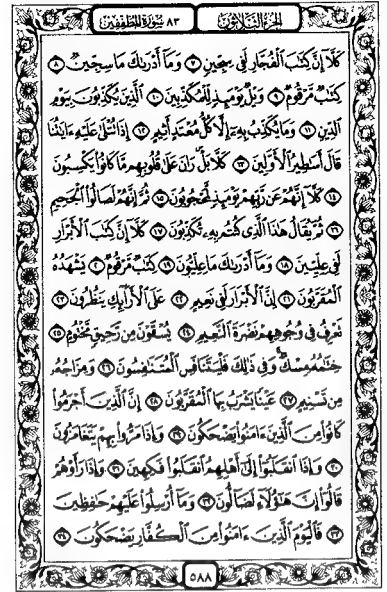 الجزء الثلاثون
٨٣ سورة المطففين
كَلَّا إِنَّ كِتَٰبَ ٱلْفُجَّارِ لَفِى سِجِّينٍ ٧ وَمَآ أَدْرَىٰكَ مَا سِجِّينٌ ٨
كِتَٰبٌ مَّرْقُومٌ ٩ وَيْلٌ يَوْمَئِذٍ لِّلْمُكَذِّبِينَ ١٠ ٱلَّذِينَ يُكَذِّبُونَ بِيَوْمِ
ٱلدِّينِ ١١ وَمَا يُكَذِّبُ بِهِۦٓ إِلَّا كُلُّ مُعْتَدٍ أَثِيمٍ ١٢ إِذَا تُتْلَىٰ عَلَيْهِ ءَايَٰتُنَا
قَالَ أَسَٰطِيرُ ٱلْأَوَّلِينَ ١٣ كَلَّا بَلْ رَانَ عَلَىٰ قُلُوبِهِم مَّا كَانُوا۟ يَكْسِبُونَ
١٤ كَلَّآ إِنَّهُمْ عَن رَّبِّهِمْ يَوْمَئِذٍ لَّمَحْجُوبُونَ ١٥ ثُمَّ إِنَّهُمْ لَصَالُوا۟ ٱلْجَحِيمِ
١٦ ثُمَّ يُقَالُ هَٰذَا ٱلَّذِى كُنتُم بِهِۦ تُكَذِّبُونَ ١٧ كَلَّآ إِنَّ كِتَٰبَ ٱلْأَبْرَارِ
لَفِى عِلِّيِّينَ ١٨ وَمَآ أَدْرَىٰكَ مَا عِلِّيُّونَ ١٩ كِتَٰبٌ مَّرْقُومٌ ٢٠ يَشْهَدُهُ
ٱلْمُقَرَّبُونَ ٢١ إِنَّ ٱلْأَبْرَارَ لَفِى نَعِيمٍ ٢٢ عَلَى ٱلْأَرَآئِكِ يَنظُرُونَ ٢٣
تَعْرِفُ فِى وُجُوهِهِمْ نَضْرَةَ ٱلنَّعِيمِ ٢٤ يُسْقَوْنَ مِن رَّحِيقٍ مَّخْتُومٍ ٢٥
خِتَٰمُهُۥ مِسْكٌ ۚ وَفِى ذَٰلِكَ فَلْيَتَنَافَسِ ٱلْمُتَنَٰفِسُونَ ٢٦ وَمِزَاجُهُۥ
مِن تَسْنِيمٍ ٢٧ عَيْنًا يَشْرَبُ بِهَا ٱلْمُقَرَّبُونَ ٢٨ إِنَّ ٱلَّذِينَ أَجْرَمُوا۟
كَانُوا۟ مِنَ ٱلَّذِينَ ءَامَنُوا۟ يَضْحَكُونَ ٢٩ وَإِذَا مَرُّوا۟ بِهِمْ يَتَغَامَزُونَ
٣٠ وَإِذَا ٱنقَلَبُوٓا۟ إِلَىٰٓ أَهْلِهِمُ ٱنقَلَبُوا۟ فَكِهِينَ ٣١ وَإِذَا رَأَوْهُمْ
قَالُوٓا۟ إِنَّ هَٰٓؤُلَآءِ لَضَآلُّونَ ٣٢ وَمَآ أُرْسِلُوا۟ عَلَيْهِمْ حَٰفِظِينَ
٣٣ فَٱلْيَوْمَ ٱلَّذِينَ ءَامَنُوا۟ مِنَ ٱلْكُفَّارِ يَضْحَكُونَ ٣٤
٥٨٨